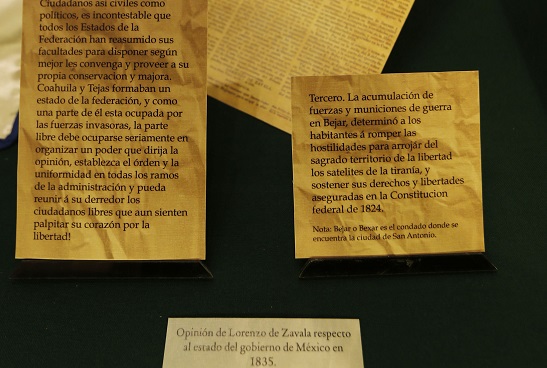 Ciudadanos asi civiles como
politicos, es incontestable que
todos los Estados de la
Federación han reasumido sus
facultades para disponer según
mejor les convenga y proveer a su
propia conservacion y majora.
Coahuila y Tejas formaban un
estado de la federación, y como
una parte de él esta ocupada por
las fuerzas invasoras, la parte
libre debe ocuparse seriamente en
organizar un poder que dirija la
opinión, establezca el órden y la
uniformidad en todas los ramos
de la administración y pueda
reunir á su derredor los
ciudadanos libres que aun sienten
palpitar su corazón por la
libertad!
Tercero. La acumulación de
fuerzas y municiones de guerra
en Bejar, determinó a los
habitantes á romper las
hostilidades para arrojár del
sagrado territorio de la libertad
los satelites de la tirania, y
sostener sus derechos y libertades
aseguradas en la Constitucion
federal de 1824.
Nota: Bejar o Bexar es el condado donde se
encuentra la ciudad de San Antonio.
Opinión de Lorenzo de Zavala respecto
al estado del gobierno de México en
1835.